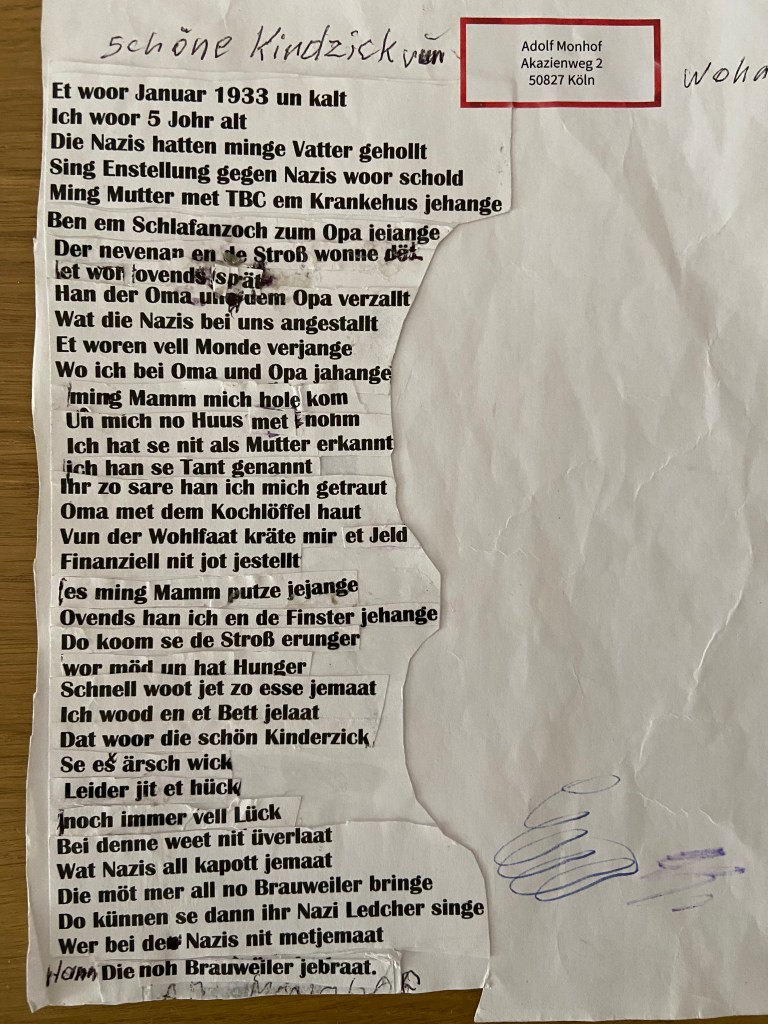 schöne Kindzick vun
Adolf Monhof
Akazienweg 2
50827 Köln
Et woor Januar 1933 un kalt
Ich woor 5 Johr alt
Die Nazis hatten minge Vatter gehollt
Sing Enstellung gegen Nazis woor schold
Ming Mutter met TBC em Krankehus jehange
Ben em Schlafanzoch zum Opa ieiange
Der nevenan en de Stroß wonne dät
et wor ovends spät
Han der Oma un dem Opa verzallt
Wat die Nazis bei uns angestallt
Et woren vell Monde verjange
Wo ich bei Oma und Opa jahange
ming Mamm mich hole kom
Un mich no Huus met nohm
Ich hat se nit als Mutter erkannt
ich han se Tant genannt
Ihr zo sare han ich mich getraut
Oma met dem Kochlöffel haut
Vun der Wohlfaat kräte mir et Jeld
Finanziell nit jot jestellt
es ming Mamm putze jejange
Ovends han ich en de Finster jehange
Do koom se de Stroß erunger
wor möd un hat Hunger
Schnell woot jet zo esse jemaat
Ich wood en et Bett jelaat
Dat woor die schön Kinderzick
Se es ärsch wick
Leider jit et hück
noch immer vell Lück
Bei denne weet nit üverlaat
Wat Nazis all kapott jemaat
Die möt mer all no Brauweiler bringe
Do künnen se dann ihr Nazi Ledcher singe
Wer bei de Nazis nit metjemaat
Hann Die noh Brauweiler jebraat.